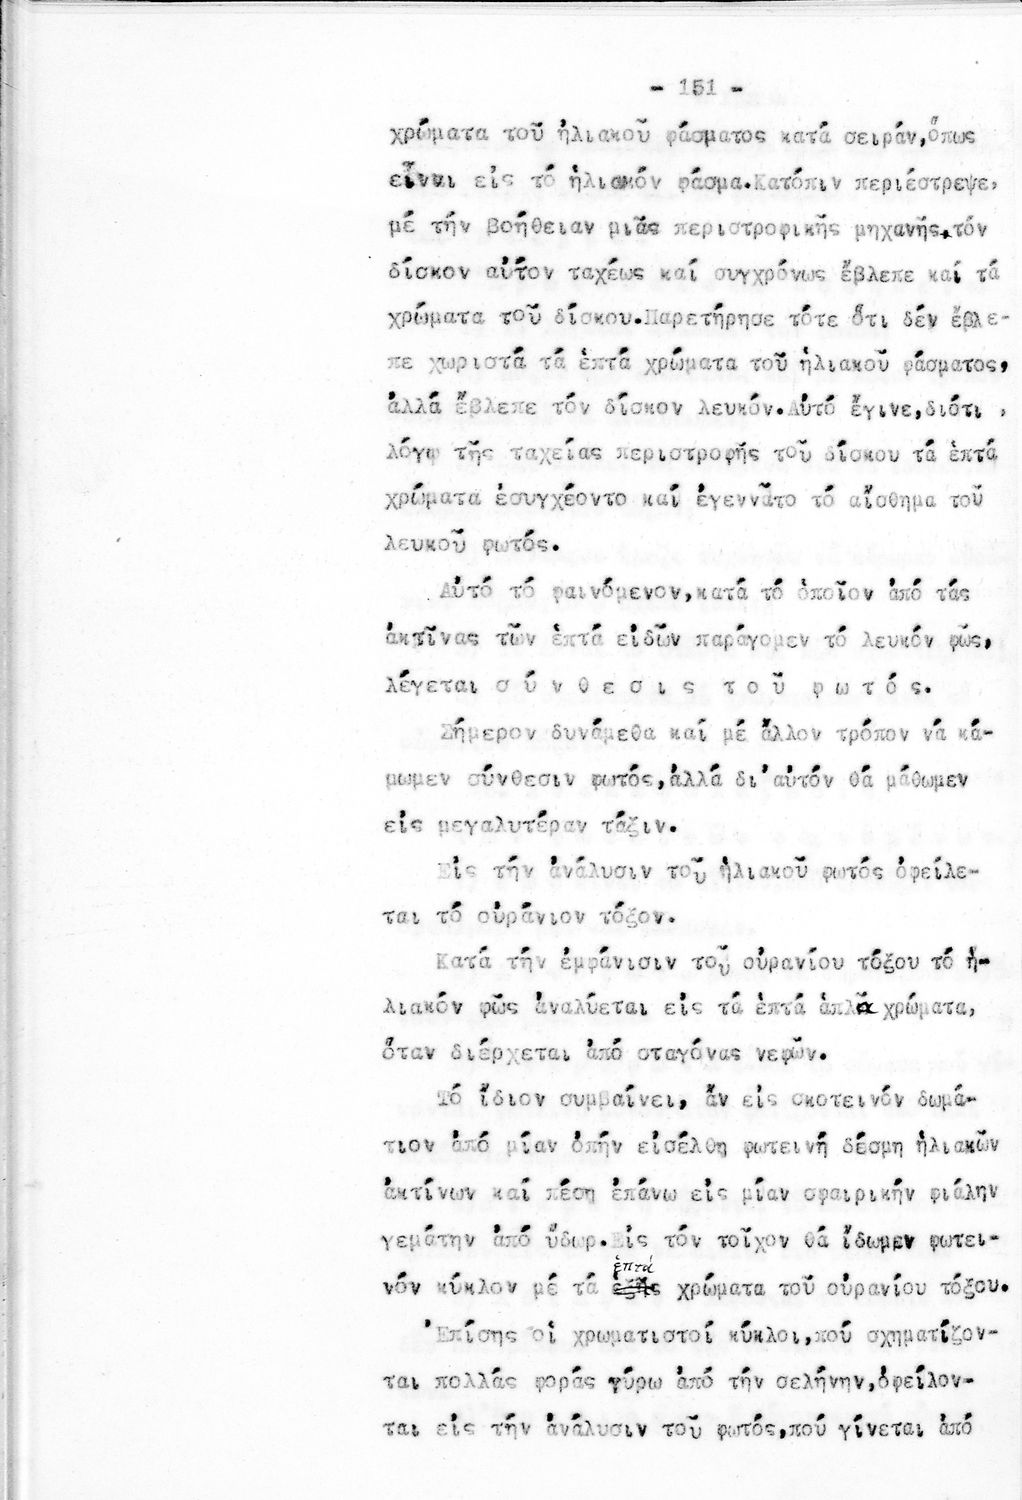 - 151 -
χρώματα τοῦ ἡλιακοῦ φάσματος κατά σειράν,ὅπως
εἶναι εἰς τό ἡλιακόν φάσμα.Κατόπιν περιέστρεψε,
μέ τήν βοήθειαν μιᾶς περιστροφικῆς μηχανῆς,τόν
δίσκον αὐτόν ταχέως καί συγχρόνως ἔβλεπε καί τά
χρώματα τοῦ δίσκου.Παρετήρησε τότε ὅτι δέν ἔβλε-
πε χωριστά τά ἑπτά χρώματα τοῦ ἡλιακοῦ φάσματος,
ἀλλά ἔβλεπε τόν δίσκον λευκόν.Αὐτό ἔγινε,διότι ,
λόγῳ τῆς ταχείας περιστροφῆς τοῦ δίσκου τά ἑπτά
χρώματα ἐσυγχέοντο καί ἐγεννᾶτο τό αἴσθημα τοῦ
λευκοῦ φωτός.
Αὐτό τό φαινόμενον,κατά τό ὁποῖον ἀπό τάς
ἀκτῖνας τῶν ἑπτά εἰδῶν παράγομεν τό λευκόν φῶς,
λέγεται σ ύ ν θ ε σ ι ς  τ ο ῦ  φ ω τ ό ς.
Σήμερον δυνάμεθα καί μέ ἄλλον τρόπον νά κά-
μωμεν σύνθεσιν φωτός,ἀλλά δι'αὐτόν θά μάθωμεν
εἰς μεγαλυτέραν τάξιν.
Εἰς τήν ἀνάλυσιν τοῦ ἡλιακοῦ φωτός ὀφείλε-
ται τό οὐράνιον τόξον.
Κατά τήν ἐμφάνισιν τοῦ οὐρανίου τόξου τό ἡ-
λιακόν φῶς ἀναλύεται εἰς τά ἑπτά ἁπλᾶ χρώματα,
ὅταν διέρχεται ἀπό σταγόνας νεφῶν.
Τό ἴδιον συμβαίνει, ἄν εἰς σκοτεινόν δωμά-
τιον ἀπό μίαν ὀπήν εἰσέλθῃ φωτεινή δέσμη ἡλιακῶν
ἀκτίνων καί πέσῃ ἐπάνω εἰς μίαν σφαιρικήν φιάλην
γεμάτην ἀπό ὕδωρ.Εἰς τόν τοῖχον θά ἴδωμεν φωτει-
ἑπτά
νόν κύκλον μέ τά ἑξῆς χρώματα τοῦ οὐρανίου τόξου.
Ἐπίσης οἱ χρωματιστοί κύκλοι,πού σχηματίζον-
ται πολλάς φοράς γύρω ἀπό τήν σελήνην,ὀφείλον-
ται εἰς τήν ἀνάλυσιν τοῦ φωτός,πού γίνεται ἀπό